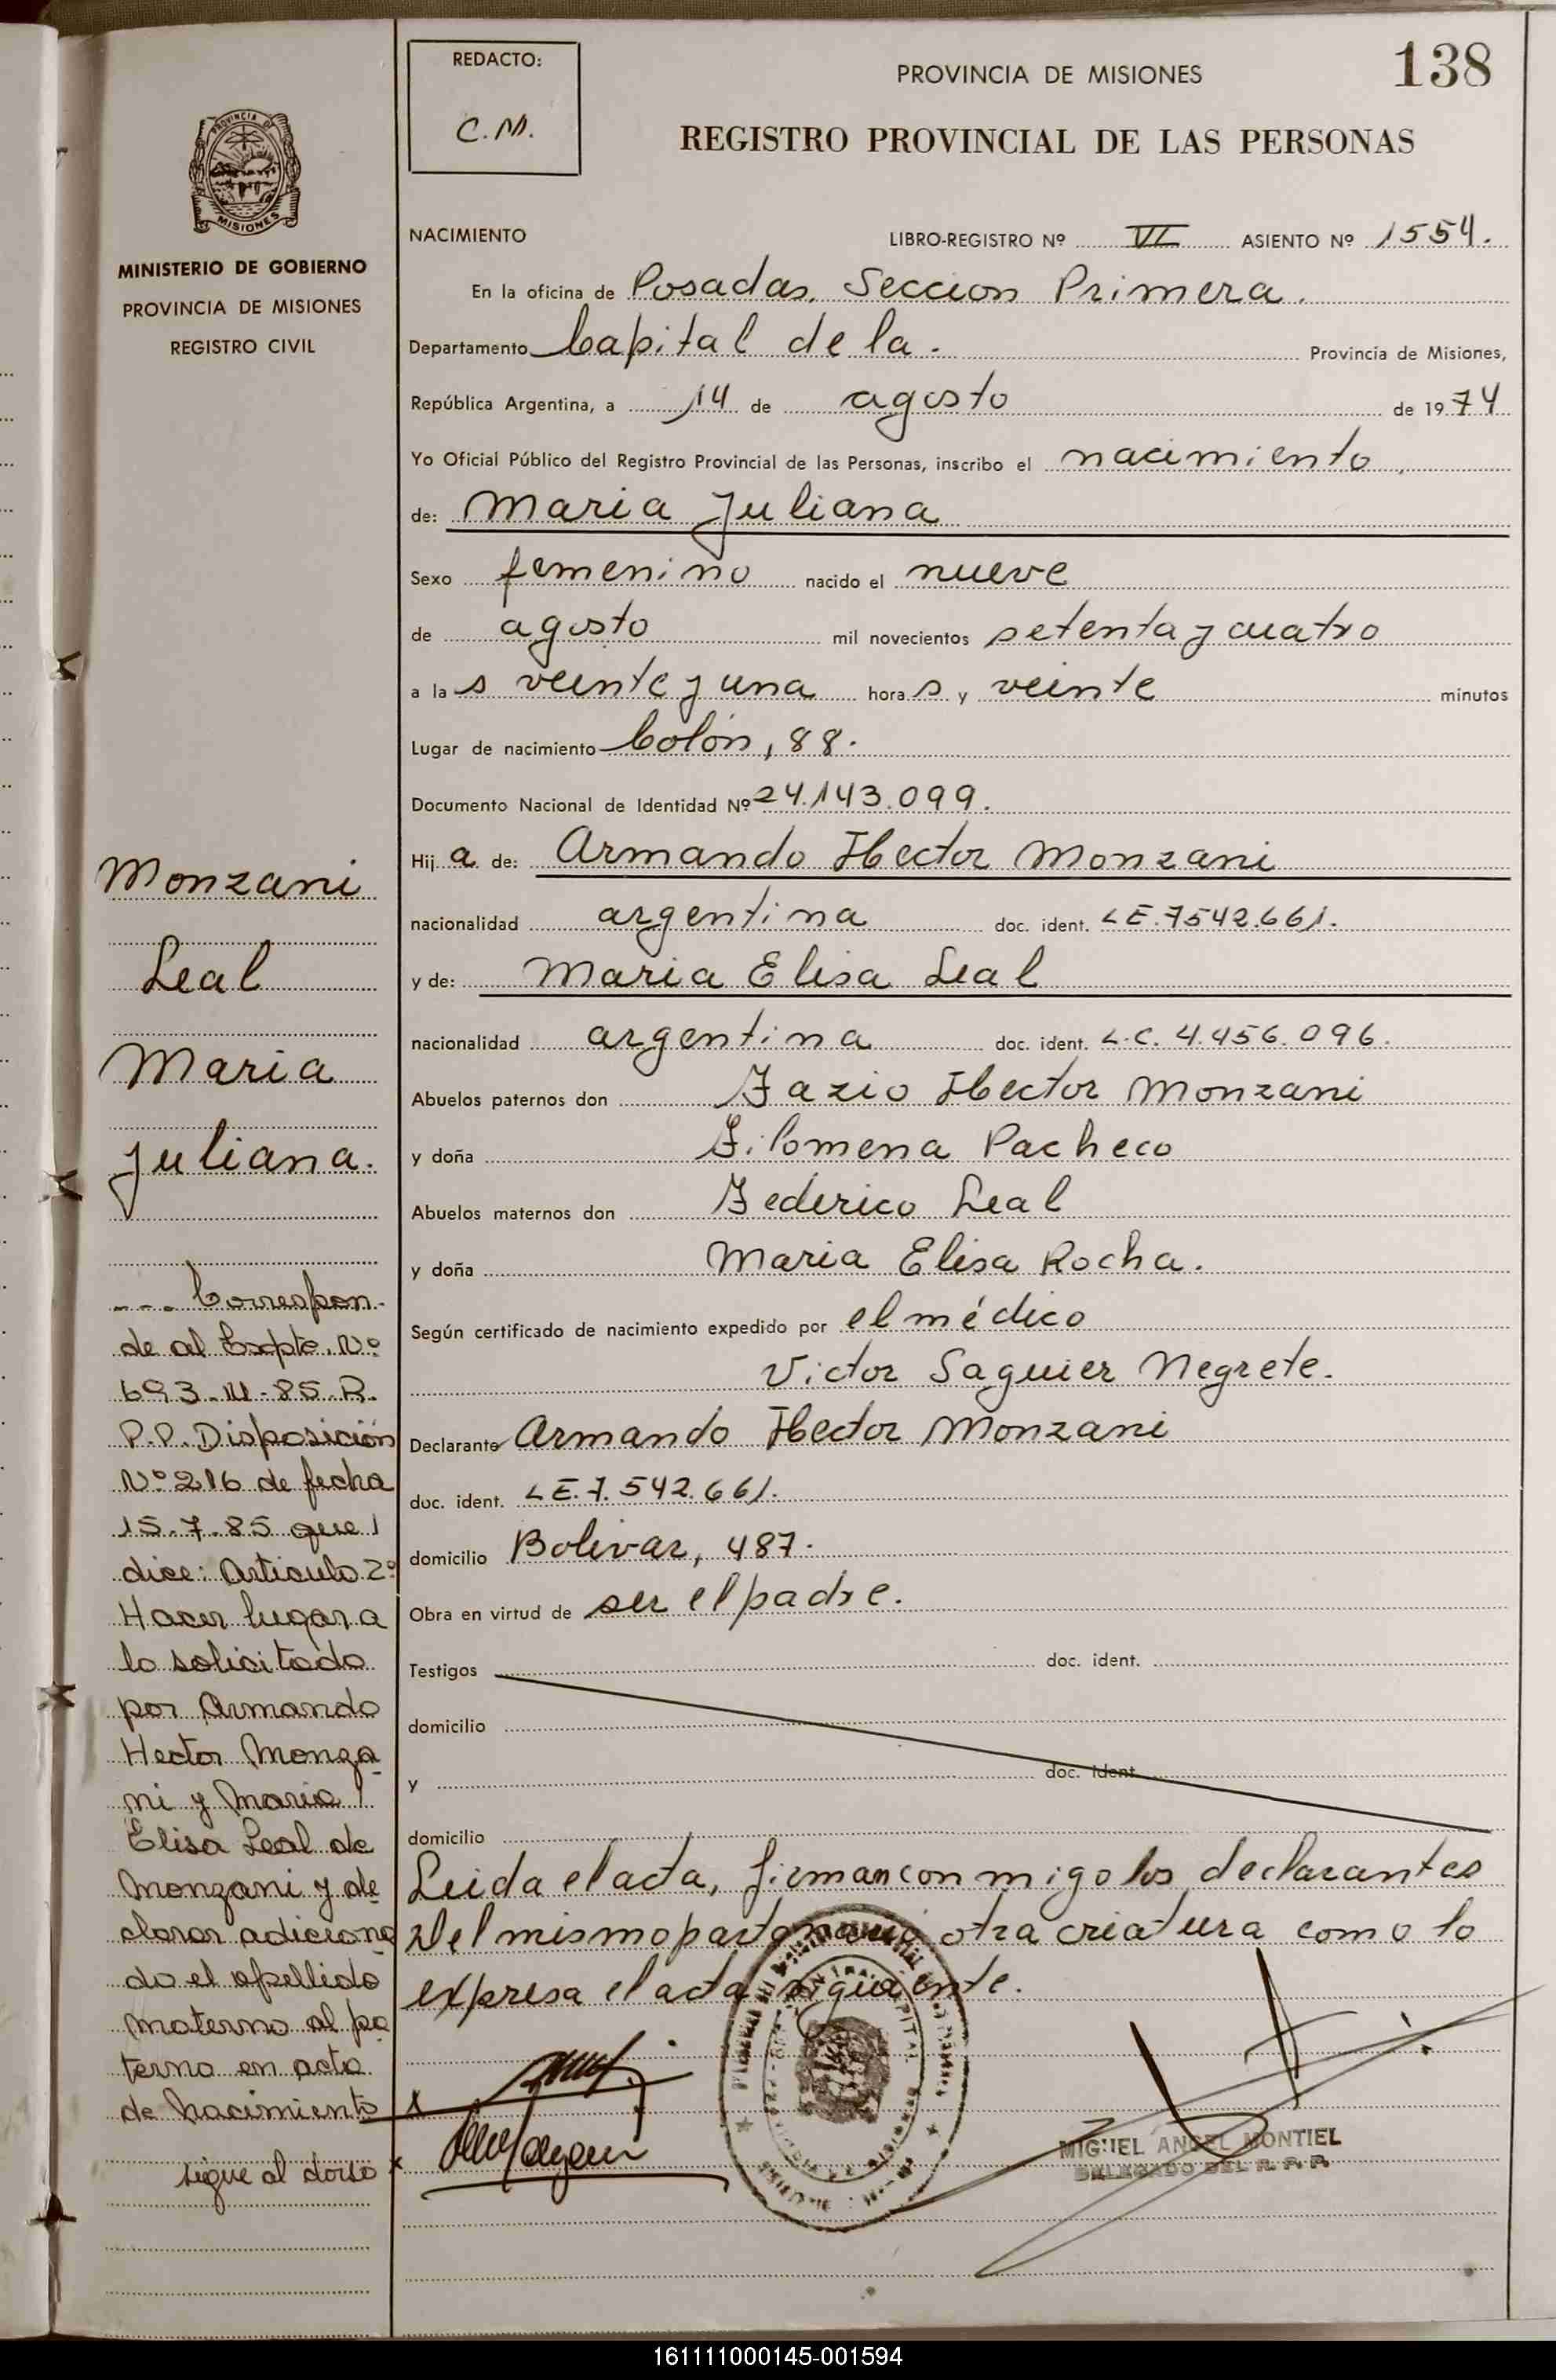 138
REDACTO:
C.M.
PROVINCIA DE MISIONES
REGISTRO PROVINCIAL DE LAS PERSONAS
PROVINCIA DE
MISIONES
MINISTERIO DE GOBIERNO
PROVINCIA DE MISIONES
REGISTRO CIVIL
NACIMIENTO LIBRO-REGISTRO Nº VI ASIENTO Nº 1554.
En la oficina de Posadas. Seccion Primera.
Departamento Capital de la. Provincia de Misiones,
República Argentina, a 14 de agosto de 1974
Yo Oficial Público del Registro Provincial de las Personas, inscribo el nacimiento
de: Maria Juliana
Sexo femenino nacido el nueve
de agosto mil novecientos setenta y cuatro
a la s veinte y una hora s y veinte minutos
Lugar de nacimiento Colón, 88.
Documento Nacional de Identidad Nº 24.143.099.
Hij a de: Armando Hector Monzani
nacionalidad argentina doc. ident. LE.7542.661.
y de: Maria Elisa Leal
nacionalidad argentina doc. ident. L.C. 4.456.096.
Abuelos paternos don Fazio Hector Monzani
y doña Filomena Pacheco
Abuelos maternos don Federico Leal
y doña Maria Elisa Rocha.
Según certificado de nacimiento expedido por el médico
Victor Saguier Negrete.
Declarante Armando Hector Monzani
doc. ident. LE.7.542.661.
domicilio Bolivar, 487.
Obra en virtud de ser el padre.
Testigos doc. ident.
domicilio
y doc. ident.
domicilio
Leida el acta, firman con migo los declarantes
Del mismo parto nació otra criatura como lo
expresa el acta siguiente.
MIGUEL ANGEL MONTIEL
DELEGADO DEL R. P. P.
Monzani
Leal
Maria
Juliana.
--- Correspon-
de al Expte. Nº
693-M-85 R.
P.P. Disposición
Nº 216 de fecha
15.7.85 que
dice: Articulo 2º
Hacer lugar a
lo solicitado
por Armando
Hector Monza
ni y Maria
Elisa Leal de
Monzani y de
clarar adiciona
do el apellido
materno al pa
terno en acta
de nacimiento
sigue al dorso
161111000145-001594